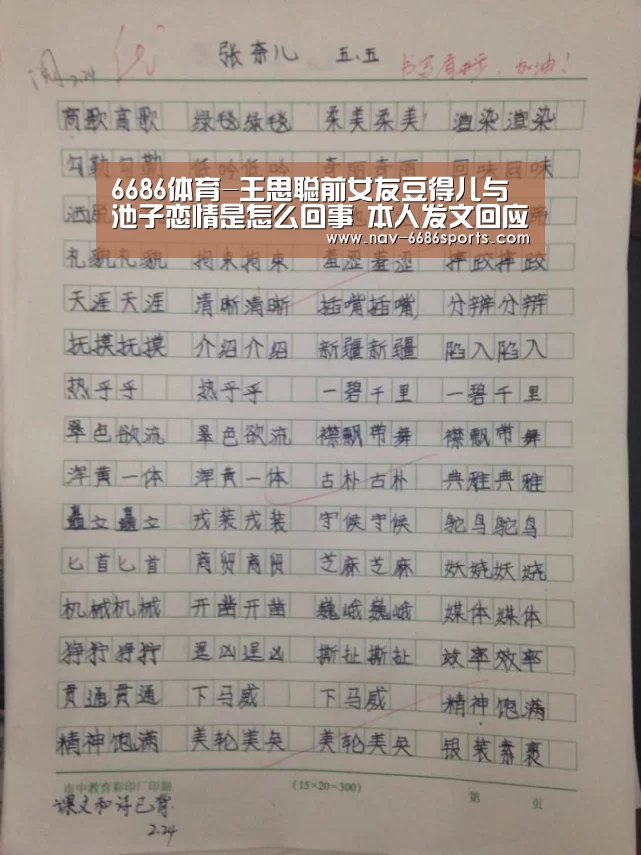 阅 2.24 张奈儿 五.五 加油!
高歌高歌 绿毯绿毯 柔美柔美 渲染渲染
勾勒勾勒 低吟低吟 奇丽奇丽 回味回味
6686体育-王思聪前女友豆得儿与
池子恋情是怎么回事 本人发文回应
www.nav-6686sports.com
礼貌礼貌 拘束拘束 羞涩羞涩 摔跤摔跤
天涯天涯 清晰清晰 插嘴插嘴 分辩分辩
抚摸抚摸 介绍介绍 新疆新疆 陷入陷入
热乎乎 热乎乎 一碧千里 一碧千里
翠色欲流 翠色欲流 襟飘带舞 襟飘带舞
浑黄一体 浑黄一体 古朴古朴 典雅典雅
矗立矗立 戎装戎装 守候守候 鸵鸟鸵鸟
匕首匕首 商贸商贸 芝麻芝麻 妖娆妖娆
机械机械 开凿开凿 巍峨巍峨 媒体媒体
狰狞狰狞 逞凶逞凶 撕扯撕扯 效率效率
贯通贯通 下马威 下马威 精神饱满
精神饱满 美轮美奂 美轮美奂 银装素裹
市中教育彩印厂印制 (15×20=300) 第 页
课文和诗已背
2.24